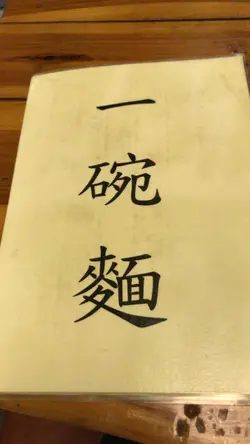 一
碗
麵